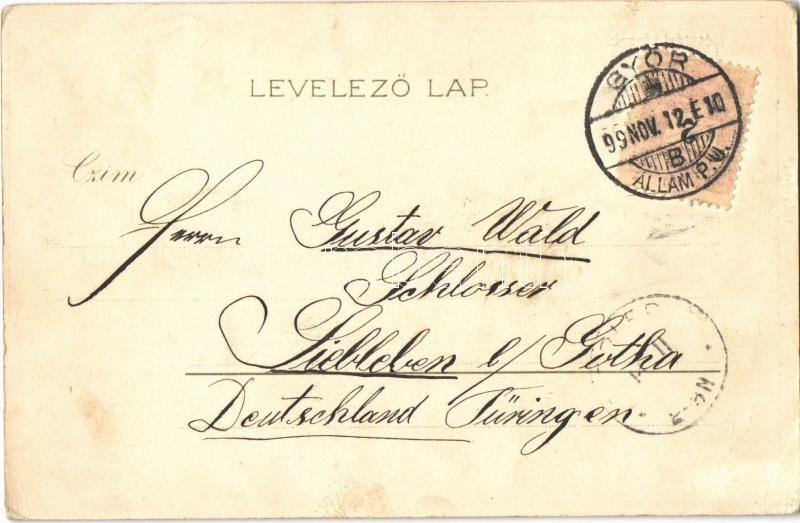 LEVELEZŐ LAP.
GYŐR
99 NOV. 12. É 10
B 2
ÁLLAM P.U.
Czim
Herrn Gustav Wald
Schlosser
Siebleben b/ Gotha
Deutschland Türingen